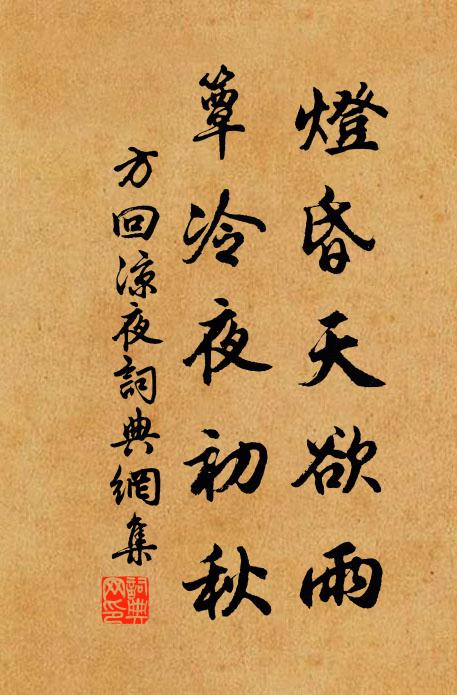 燈昏天欲雨
簟冷夜初秋
方回涼夜詞典網集
詞典網印